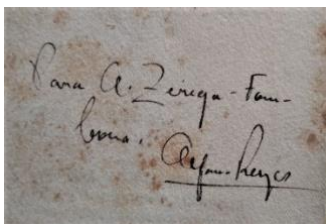 Para A. Zérega-Fom-
bona.
Alfonso Reyes